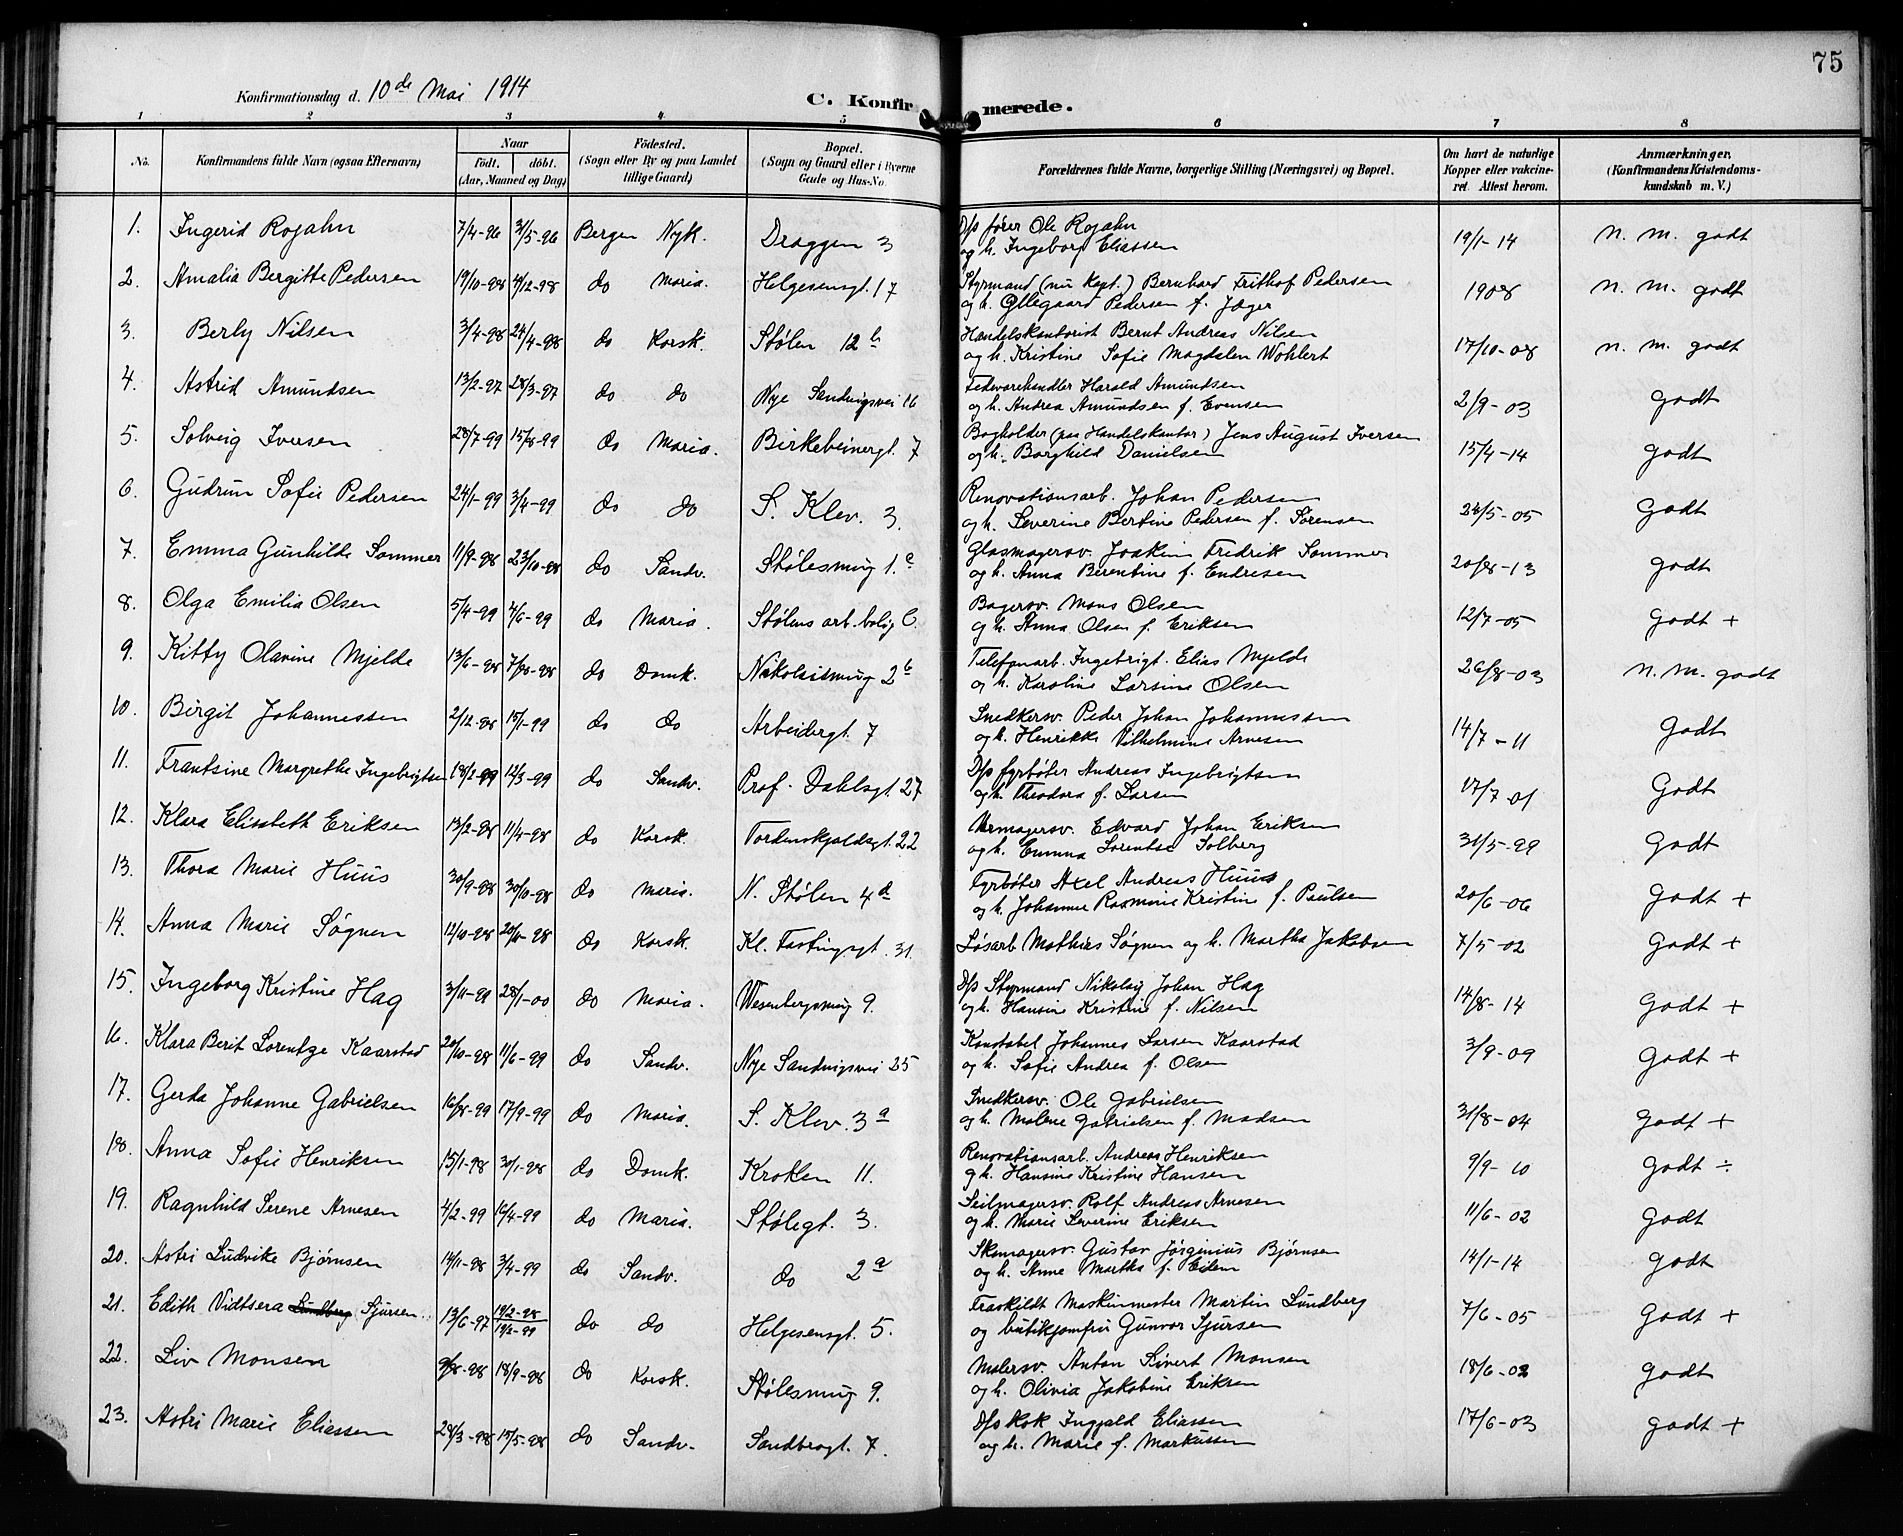 75
Konfirmationsdag d. 10de Mai 1914
C. Konfirmerede.
1 2 3 4 5 6 7 8
No. Konfirmandens fulde Navn (ogsaa Efternavn) Naar födt. döbt. (Aar, Maaned og Dag) Födested. (Sogn eller By og paa Landet tillige Gaard) Bopæl. (Sogn og Gaard eller i Byerne Gade og Hus-No. Forældrenes fulde Navne, borgerlige Stilling (Næringsvei) og Bopæl. Om havt de naturlige Kopper eller vakcineret. Attest herom. Anmærkninger, (Konfirmandens Kristendomskundskab m. V.)
1. Ingerid Rojahn 7/4-96 3/5-96 Bergen Nyk. Draggen 3 D/s fører Ole Rojahn 19/1-14 n. m. godt
og h. Ingeborg Eliassen
2. Amalia Bergitte Pedersen 19/10-98 4/12-98 do Maria. Helgesensgt. 17 Styrmand (nu Kapt.) Bernhard Frithof Pedersen 1908 n. m. godt
og h. Ollegaard Pedersen f. Jæger
3. Berly Nilsen 3/4-98 24/4-98 do Korsk. Stølen 12 b Handelskontorist Bernt Andreas Nilsen 17/10-08 n. m. godt
og h. Kristine Sofie Magdalen Wohlert
4. Astrid Amundsen 13/2-97 28/3-97 do do Nye Sandvigsvei 16 Fedevarehandler Harald Amundsen 2/9-03 godt
og h. Andrea Amundsen f. Evensen
5. Solveig Iversen 28/7-99 15/8-99 do Maria. Birkebeinergt. 7 Bogholder (paa Handelskontor) Jens August Iversen 15/4-14 godt
og h. Borghild Danielsen
6. Gudrun Sofie Pedersen 24/1-99 3/4-99 do do S. Klev. 3. Renovationsarb. Johan Pedersen 24/5-05 Godt
og h. Severine Bertine Pedersen f. Sørensen
7. Emma Gunhilde Sommer 11/9-98 23/10-98 do Sandv. Stølesmug 1.a Glasmagersv. Joakim Fredrik Sommer 20/8-13 godt
og h. Anna Berentine f. Endresen
8. Olga Emilia Olsen 5/4-99 4/6-99 do Maria. Stølens arb. bolig C. Bagersv. Mons Olsen 12/7-05 Godt +
og h. Anna Olsen f. Eriksen
9. Kitty Olavine Mjelde 13/6-98 7/8-98 do Domk. Nikolaismug 2b Telefonarb. Ingebrigt Elias Mjelde 26/8-03 n. m. godt
og h. Karoline Larsine Olsen
10. Birgit Johannessen 2/12-98 15/1-99 do do Arbeidergt. 7 Snedkersv. Peder Johan Johannessen 14/7-11 Godt
og h. Henrikke Vilhelmine Arnesen
11. Frantsine Margrethe Ingebrigtsen 18/2-99 12/3-99 do Sandv. Prof. Dahlsgt. 27 D/s fyrbøter Andreas Ingebrigtsen 17/7-01 Godt
og h. Theodora f. Larsen
12. Klara Elisabeth Eriksen 13/2-98 11/4-98 do Korsk. Tordenskjoldsgt. 22 Urmagersv. Edvard Johan Eriksen 31/5-99 Godt
og h. Emma Lorentse Solberg
13. Thora Marie Huus 30/9-98 30/10-98 do Maria. N. Stølen 4d Fyrbøter Axel Andreas Huus 20/6-06 Godt +
og h. Johanne Rasmine Kristine f. Paulsen
14. Anna Marie Søgnen 12/10-98 20/11-98 do Korsk. Kl. Fastingsgt. 31. Løsarb. Mathias Søgnen og h. Martha Jakobsen 7/5-02 Godt +
15. Ingeborg Kristine Hag 3/11-99 28/1-00 do Maria. Wesenbergsmug 9. D/s Styrmand Nikolay Johan Hag 14/8-14 Godt +
og h. Hansine Kristine f. Nilsen
16. Klara Berit Lorentze Kaarstad 20/10-98 11/6-99 do Sandv. Nye Sandvigsvei 25 Konstabel Johannes Larsen Kaarstad 3/9-09 Godt +
og h. Sofie Andrea f. Olsen
17. Gerda Johanne Gabrielsen 16/8-99 17/9-99 do Maria. S. Klev. 3a Snedkersv. Ole Gabrielsen 31/8-04 godt +
og h. Malene Gabrielsen f. Madsen
18. Anna Sofie Henriksen 15/1-98 30/1-98 do Domk. Kroken 11. Renovationsarb. Andreas Henriksen 9/9-10 Godt ÷
og h. Hansine Kristine Hansen
19. Ragnhild Serene Arnesen 4/2-99 16/4-99 do Maria. Stølegt. 3. Seilmagersv. Rolf Andreas Arnesen 11/6-02 Godt
og h. Marie Severine Eriksen
20. Astri Ludvike Bjørnsen 14/11-98 3/4-99 do Sandv. do 2a Skomagersv. Gustav Jørginius Bjørnsen 14/1-14 godt
og h. Anne Martha f. Eidem
21. Edith Vidtsera Lundberg Sjursen 13/6-97 19/2-98 19/2-99 do do Helgesensgt. 5. Fraskildt Maskinmester Martin Lundberg 7/6-05 Godt +
og butikjomfru Gunvor Sjursen
22. Liv Monsen 9/8-98 18/9-98 do Korsk. Stølesmug 9. Malersv. Anton Sivert Monsen 18/6-02 Godt
og h. Olivia Jakobine Eriksen
23. Astri Marie Eliassen 28/3-98 15/5-98 do Sandv. Sandbrogt. 7. D/s Kok Ingvald Eliassen 17/6-03 Godt +
og h. Marie f. Markussen